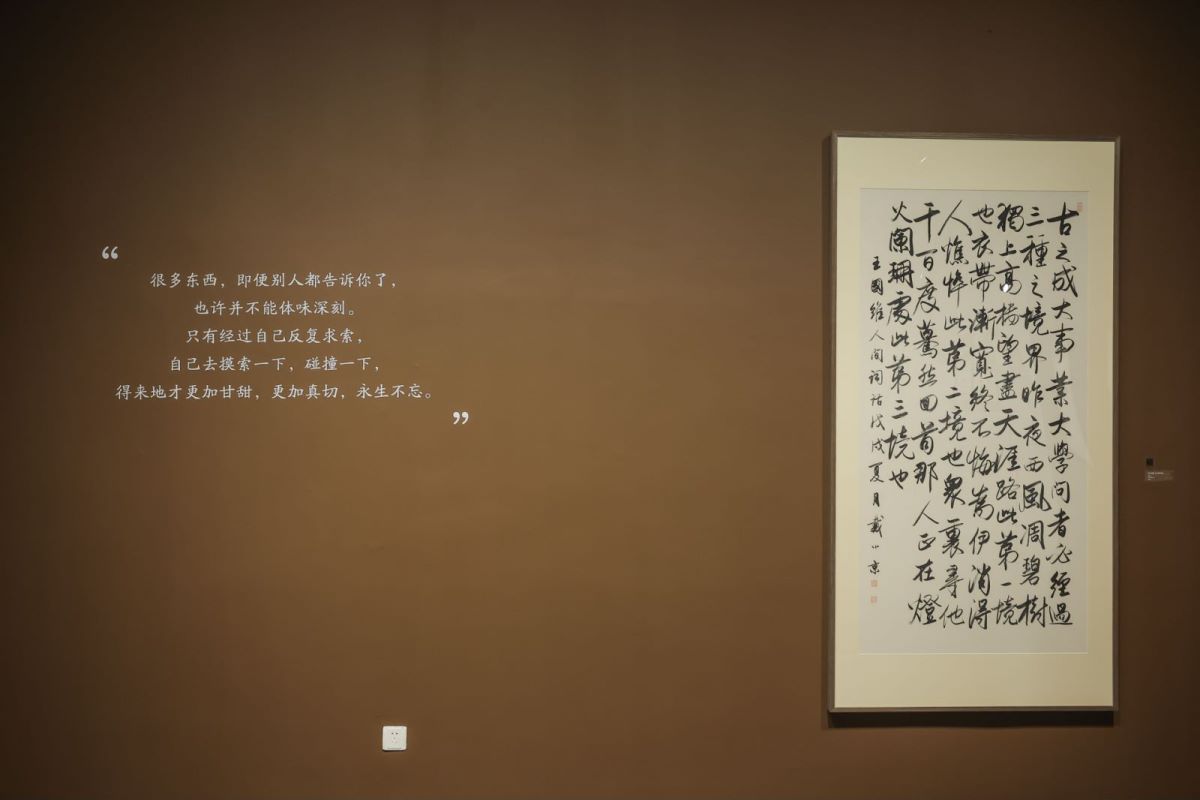 “
很多东西，即便别人都告诉你了，
也许并不能体味深刻。
只有经过自己反复求索，
自己去摸索一下，碰撞一下，
得来地才更加甘甜，更加真切，永生不忘。
”
古之成大事業大學问者必經過
三種之境界昨夜西風凋碧樹
獨上高樓望盡天涯路此第一境
也衣帶漸寬終不悔為伊消得
人憔悴此第二境也衆裏尋他
千百度驀然回首那人正在燈
火闌珊處此第三境也
王國維人间词话戊戌夏月戴小京